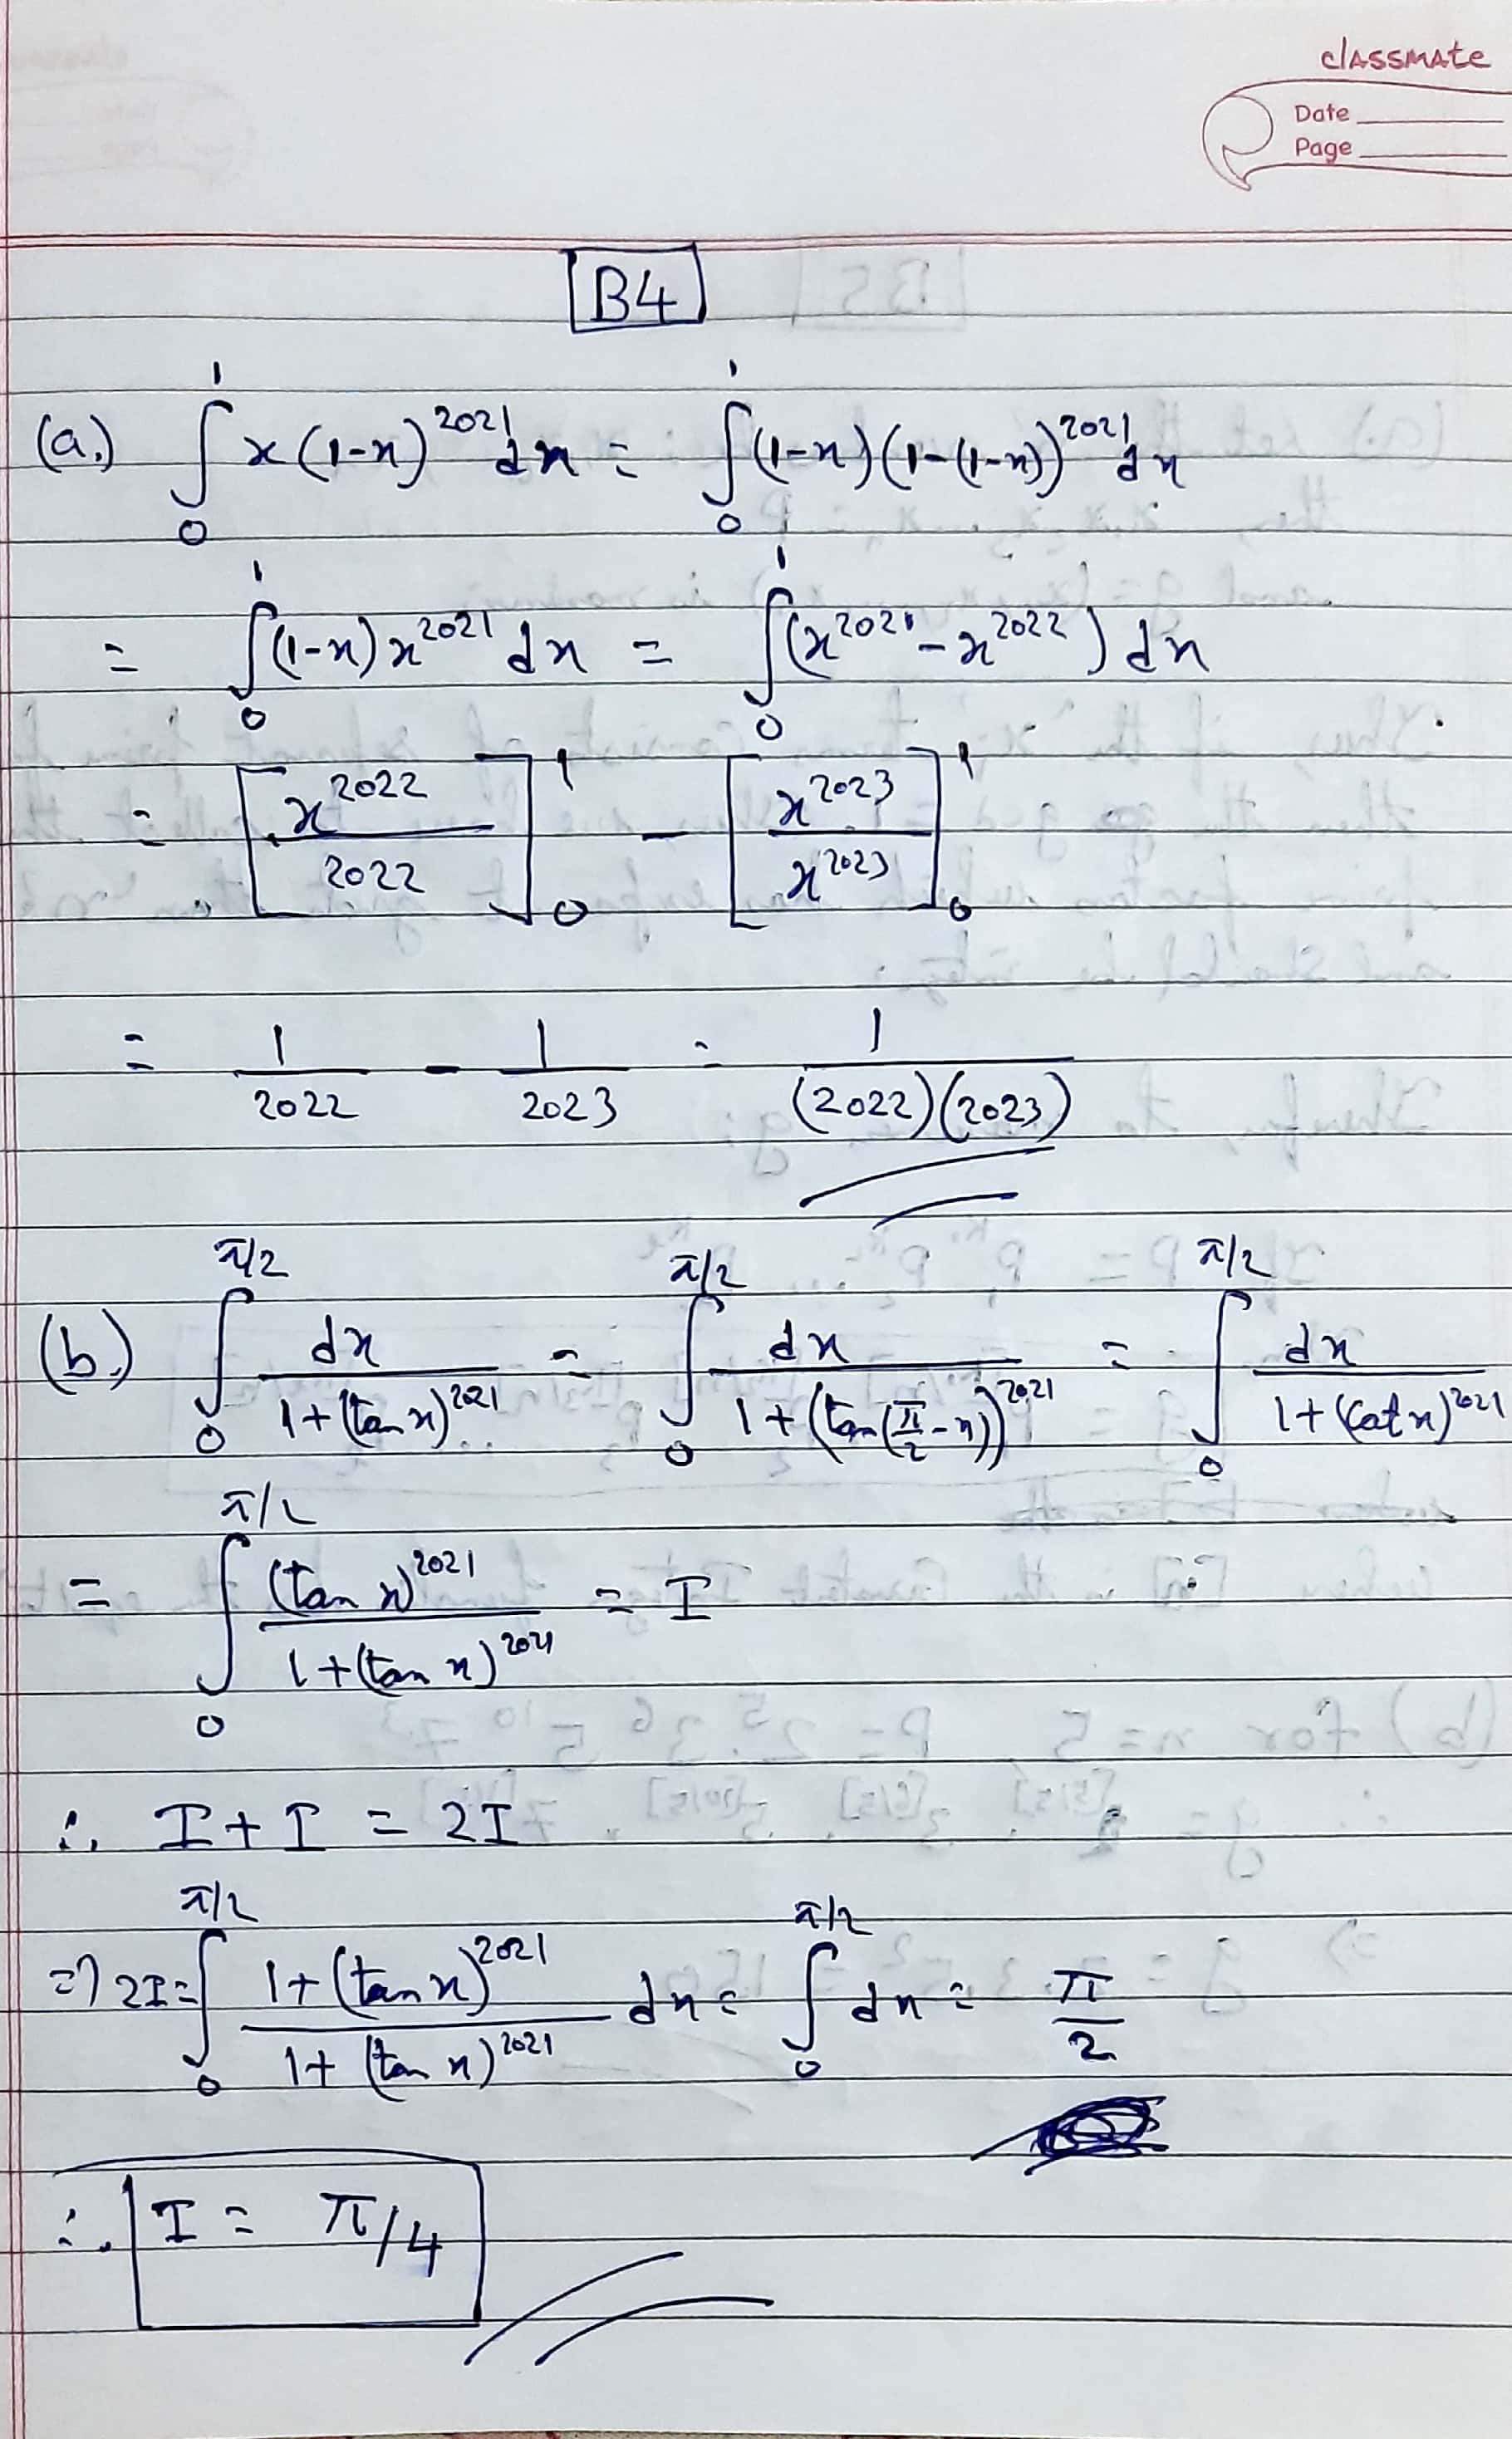 classmate
Date
Page
B4
(a.) ∫₀¹ x(1-x)^2021 dx = ∫₀¹ (1-x)(1-(1-x))^2021 dx
= ∫₀¹ (1-x) x^2021 dx = ∫₀¹ (x^2021 - x^2022) dx
= [x^2022 / 2022]₀¹ - [x^2023 / x^2023]₀¹
= 1/2022 - 1/2023 = 1/(2022)(2023)
(b.) ∫₀^π/2 dx / 1+(tan x)^2021 = ∫₀^π/2 dx / 1+(tan(π/2 - x))^2021 = ∫₀^π/2 dx / 1+(cot x)^2021
= ∫₀^π/2 (tan x)^2021 / 1+(tan x)^2021 = I
∴ I + I = 2I
⇒ 2I = ∫₀^π/2 1+(tan x)^2021 / 1+(tan x)^2021 dx = ∫₀^π/2 dx = π/2
∴ I = π/4